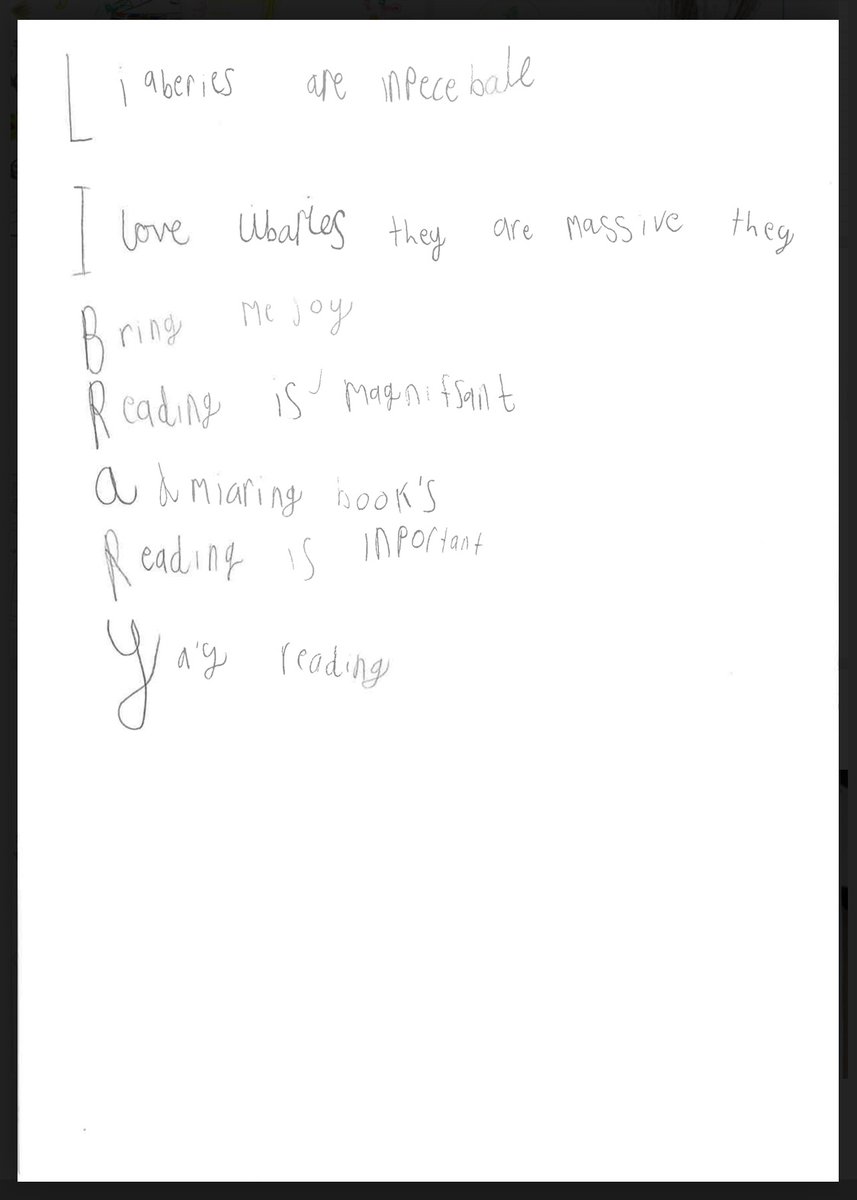 Liaberies are inpecebale
I love libaries they are massive they
Bring me joy
Reading is magnifsant
admiaring book's
Reading is inportant
Yay reading